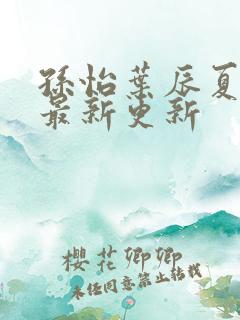 孫怡葉辰夏
最新更新
櫻花卿卿
未经同意禁止转载